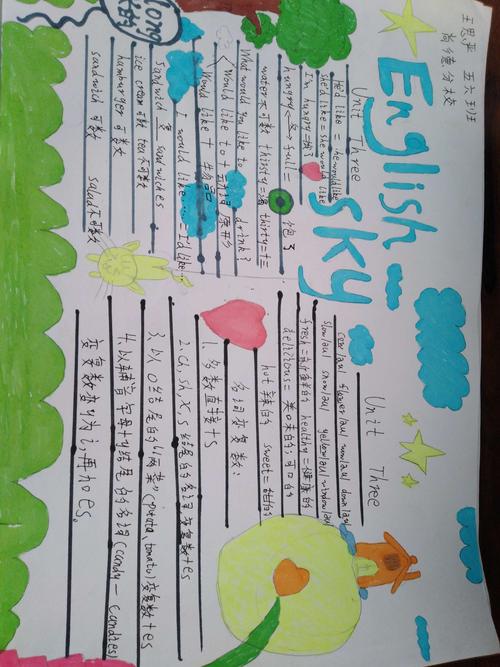 王思平 五六班
尚德分校
English
sky
Unit Three
He'd like = he would like
she'd like = she would like
I'm hungry = 饿了
hungry ↔ full = 饱了
water 不可数 thirsty = 渴 thirty = 三十
What would you like to drink?
Would like to + 动词原形
Would like +
I would like = I'd like
sandwich 变 sandwiches
ice cream 可数 tea 不可数
hamburger 可数
sandwich 可数 salad 不可数
Unit Three
cow/au/ flower/au/ now/au/ down/au/
slow/əu/ snow/əu/ yellow/əu/ window/əu/
fresh = 新鲜的 healthy = 健康的
delicious = 美味的;可口的
hot 辣的 sweet = 甜的
名词变复数:
1. 多数直接 + s
2. ch, sh, x, s 结尾的名词变复数 + es
3. 以 o 结尾的"两菜" (potato, tomato) 变复数 + es
4. 以辅音字母 + y 结尾的名词 (candy — candies)
变复数变 y 为 i 再加 es。